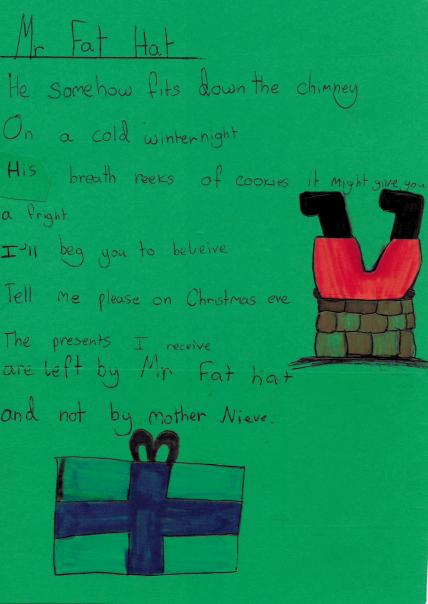 Mr Fat Hat
He somehow fits down the chimney
On a cold winternight
His breath reeks of cookies it might give you
a fright
I'll beg you to beleive
Tell me please on Christmas eve
The presents I receive
are left by Mr Fat hat
and not by mother Nieve.